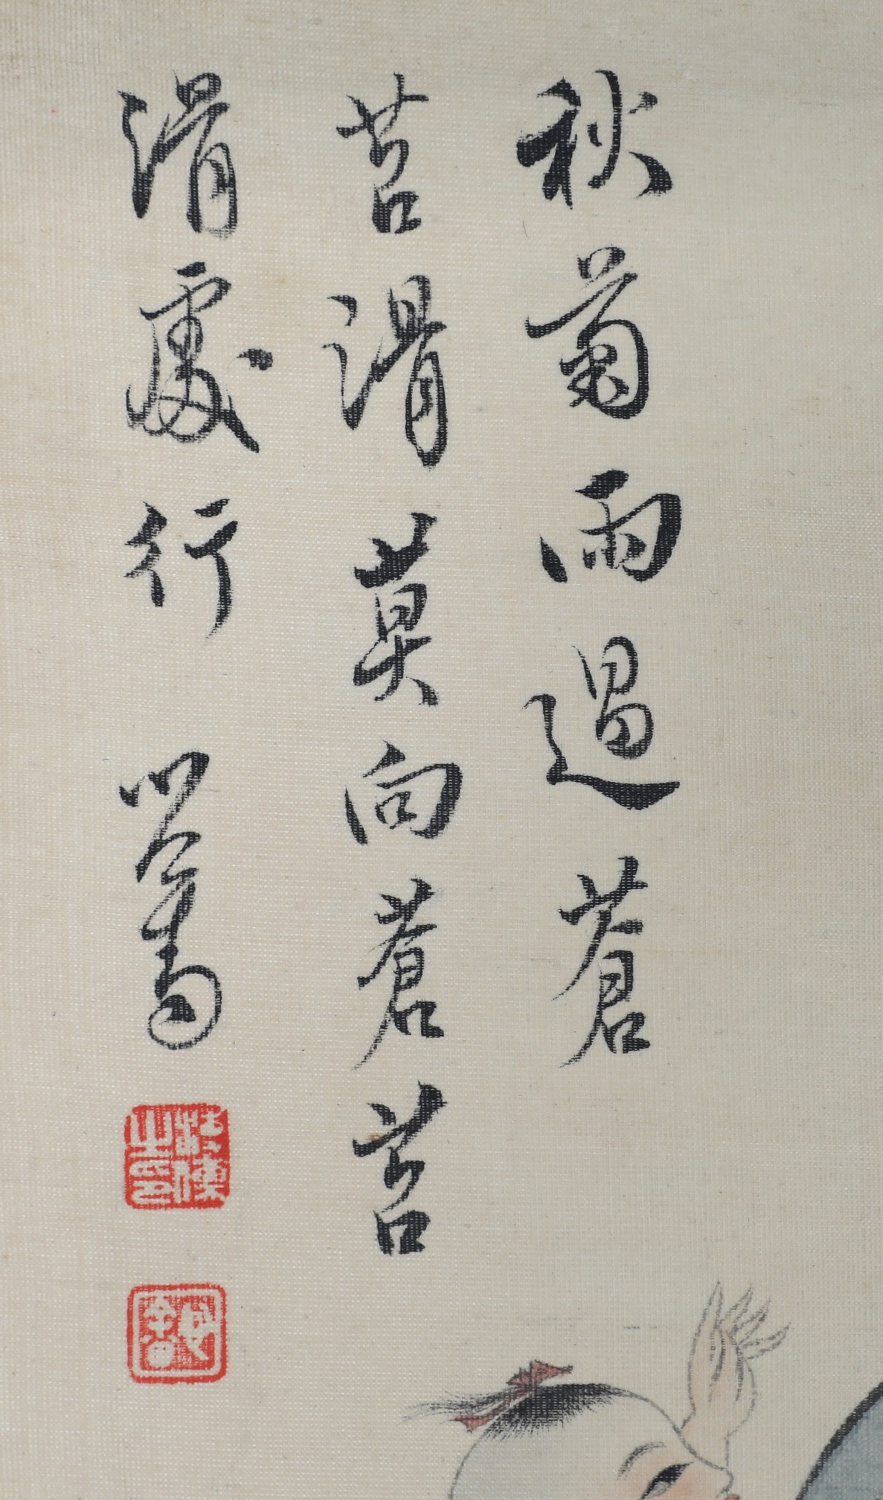 秋菊雨過蒼
苔滑莫向蒼苔
滑處行 溥儒